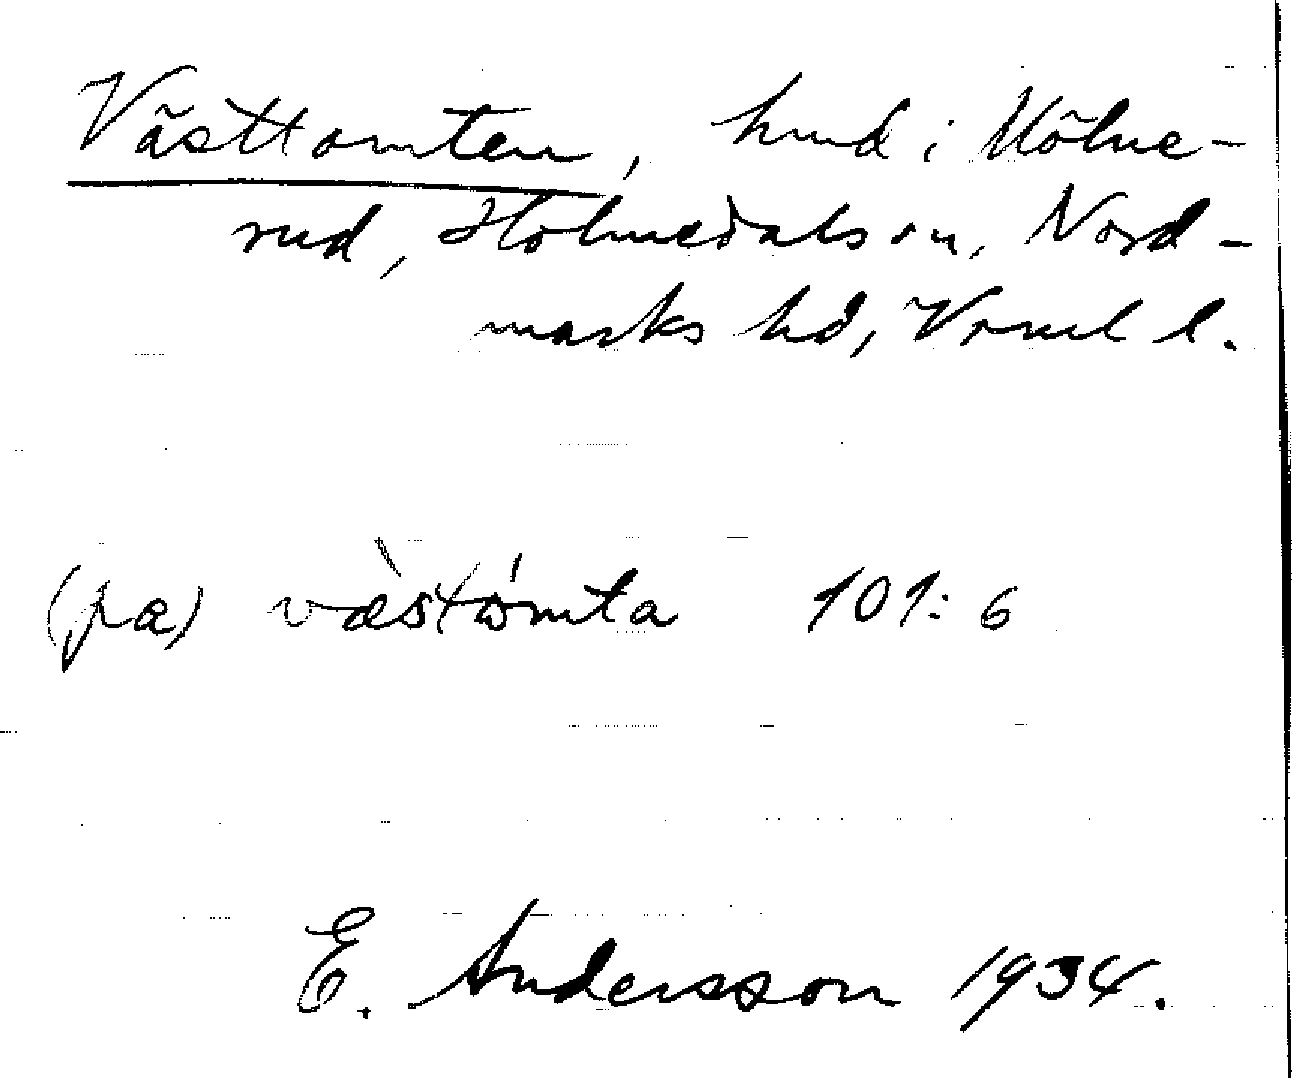 Västtomten, hmd i Mölne-
rud, Holmedals sn, Nord-
marks hd, Värml l.
(pa) væstòmta 101:6
E. Andersson 1934.